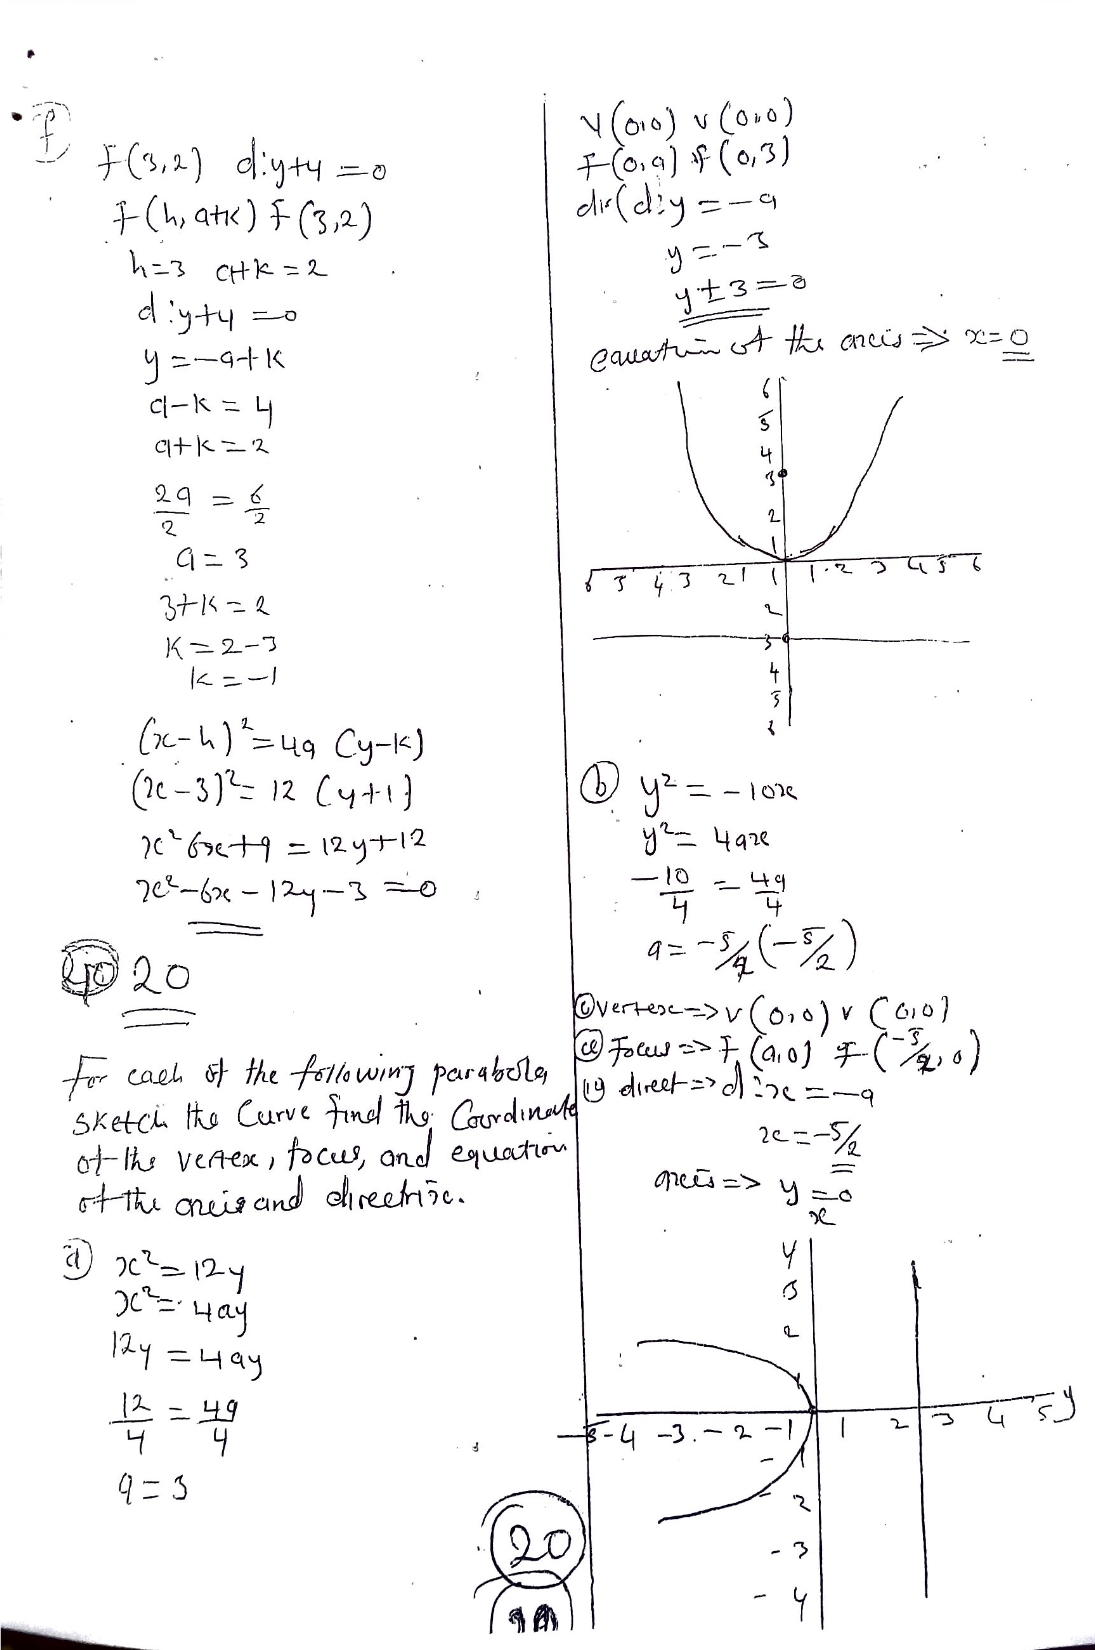 f
F(3,2) d:y+4=0
F(h, a+k) F(3,2)
h=3 a+k=2
d:y+4=0
y=-a+k
a-k=4
a+k=2
2a/2 = 6/2
a=3
3+k=2
k=2-3
k=-1
(x-h)²=4a (y-k)
(x-3)²= 12 (y+1)
x² 6x+9 = 12y+12
x²-6x-12y-3=0
20
For each of the following parabola
sketch the curve find the Coordinate
of the vertex, focus, and equation
of the axcis and directrix.
a) x²=12y
x²=4ay
12y=4ay
12/4 = 4a/4
a=3
V(0,0) v(0,0)
F(0,a) f(0,3)
dir(d:y=-a
y=-3
y+3=0
equation of the axcis => x=0
6
5
4
3
2
1
6 5 4 3 2 1 1 1 2 3 4 5 6
2
3
4
5
(b) y²=-10x
y²=4ax
-10/4 = 4a/4
a=-5/2 (-5/2)
vertex=>v(0,0) v(0,0)
Focus=>F(a,0) F(-5/2,0)
direct=>d:x=-a
x=-5/2
axcis=> y=0
x
4
3
2
1
-5 -4 -3 -2 -1 1 2 3 4 5 y
-1
2
-3
-4
20